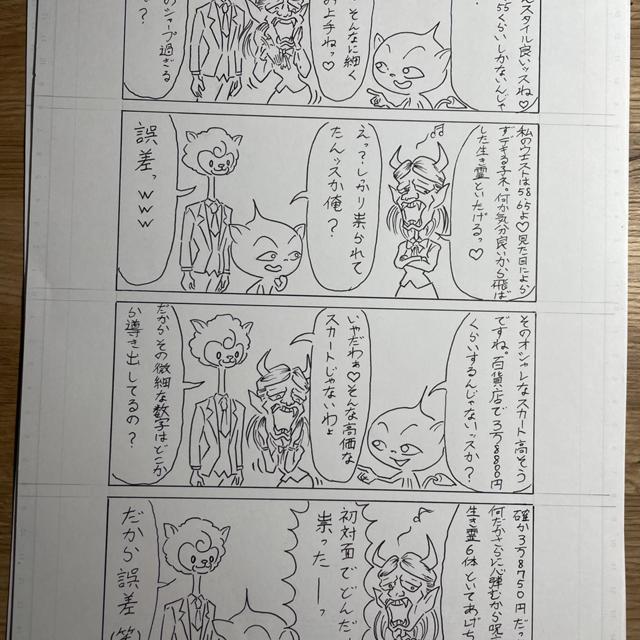 スタイル良いッスね♡
55くらいしかないんじゃ
そんなに細く
お上手ねっ♡
のシャープ過ぎる
？
私のウエストは58.65よ♡見た目によら
すデキる子ネ。何か気分良いから飛ば
した生き霊といたげるっ♡
えっ？しっかり祟られて
たんッスか俺？
誤差っwww
そのオシャレなスカート高そう
ですね。百貨店で3万8880円
くらいするんじゃないッスか？
いやだわぁ♡そんな高価な
スカートじゃないわよ
だからその微細な数字はどこか
ら導き出してるの？
確か3万8750円だっ
生き霊6体といてあげち
初対面でどんだ
祟ったーっ
だから誤差(笑)